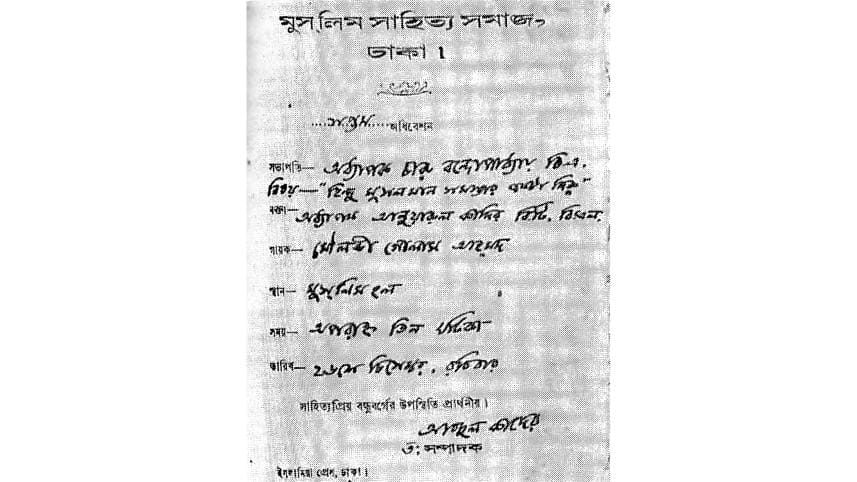 মুস্‌লিম সাহিত্য সমাজ,
ঢাকা।
....সপ্তম.... অধিবেশন
সভাপতি— অধ্যাপক চারু বন্দ্যোপাধ্যায় বি-এ.
বিষয়—"হিন্দু মুসলমান সমস্যার একটা দিক"
বক্তা— অধ্যাপক আনুয়ারুল কাদির বিটি. বিএল.
গায়ক— মৌলভী গোলাম আহমদ
স্থান— মুস্‌লিম হল
সময়— অপরাহ্ন তিন ঘটিকা
তারিখ— ২৬শে ডিসেম্বর, রবিবার
সাহিত্যপ্রিয় বন্ধুবর্গের উপস্থিতি প্রার্থনীয়।
আবদুল কাদের
সম্পাদক
ইস্‌লামিয়া প্রেস, ঢাকা।